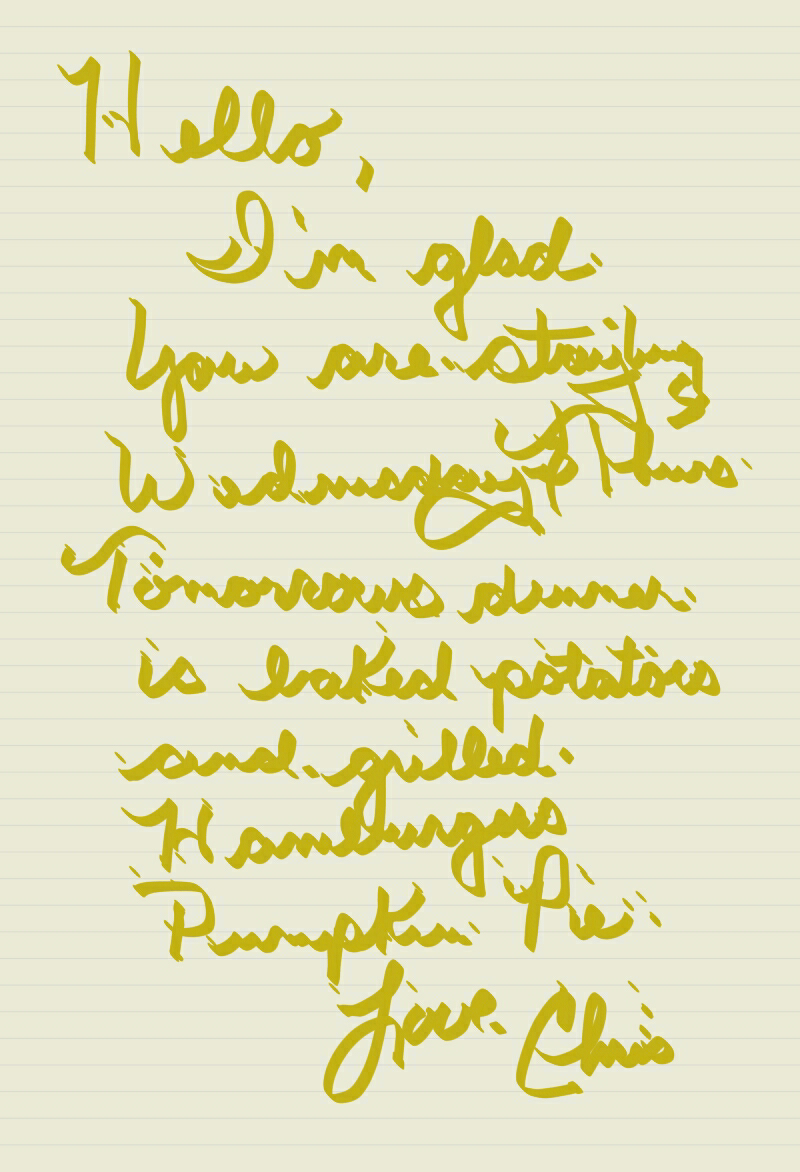 Hello,
I'm glad
you are staying
Wednesday & Thurs
Tomorrows dinner
is baked potatoes
and grilled
Hamburgers
Pumpkin Pie
Love Chris